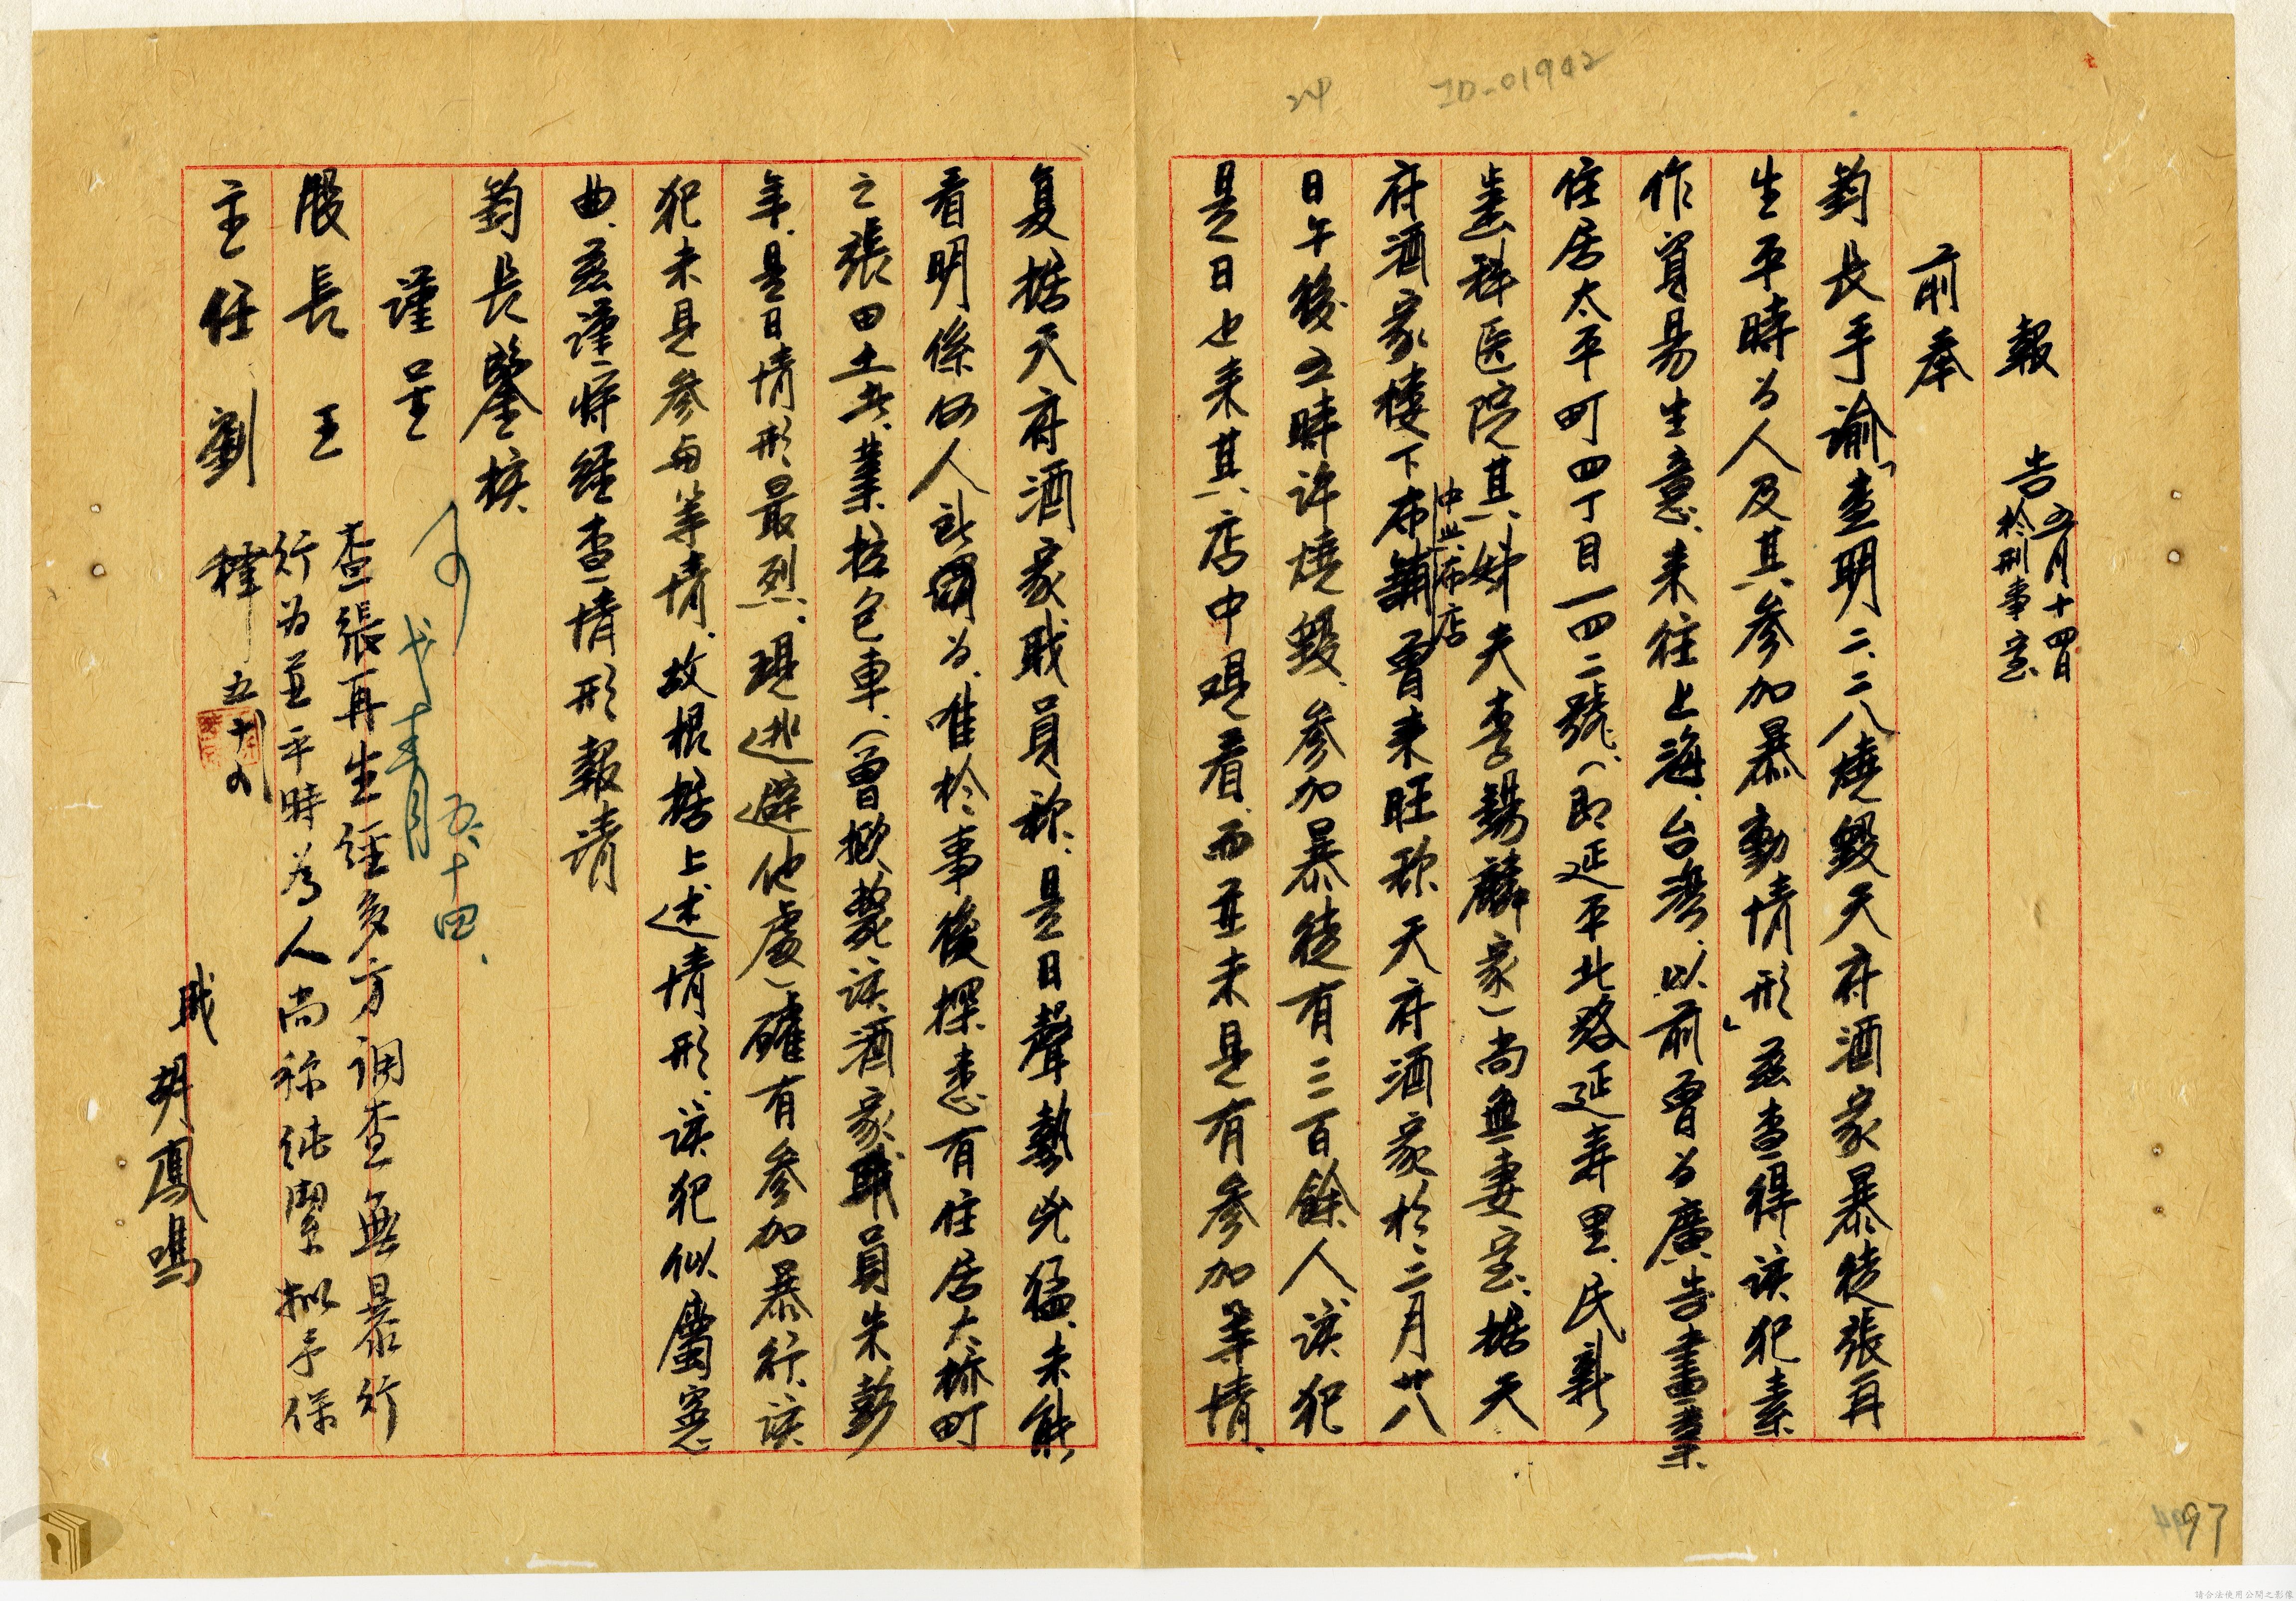 24
ID-01942
報告 五月十四日
於刑事室
前奉
鈞長手諭「查明二、二八燒毀天府酒家暴徒張再
生平時为人及其參加暴動情形」茲查得該犯素
作貿易生意、来往上海、台灣、以前曾为廣告畫業、
住居太平町四丁目一四二號、(即延平北路延壽里、民新
齒科医院其姊夫李錫麟家)尚無妻室、据天
府酒家樓下布舖曾来旺称天府酒家於二月廿八
中興布店
日午後五時許燒毀、參加暴徒有三百餘人、該犯
是日也来其店中观看、而並未見有參加等情、
复据天府酒家戝員称、是日聲勢兇猛、未能
看明係何人所为、唯於事後探悉有住居大桥町
之張田土者、業拉包車、(曾殴斃該酒家職員朱彭
年、是日情形最烈、現逃避他處)確有參加暴行、該
犯未見參与等情、故根据上述情形、該犯似屬冤
曲、茲謹将經查情形報請
鈞長鑒核
謹呈
股長 王
主任 劉
戝 胡鳳鳴
查張再生经多方调查無暴行
行为並平時為人尚称純潔拟予保
釋 五十四
五、十四、
97
請合法使用公開之影像